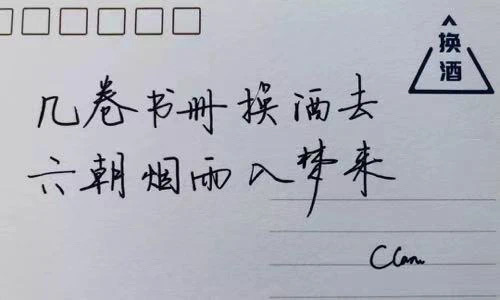 换
酒
几卷书册换酒去
六朝烟雨入梦来